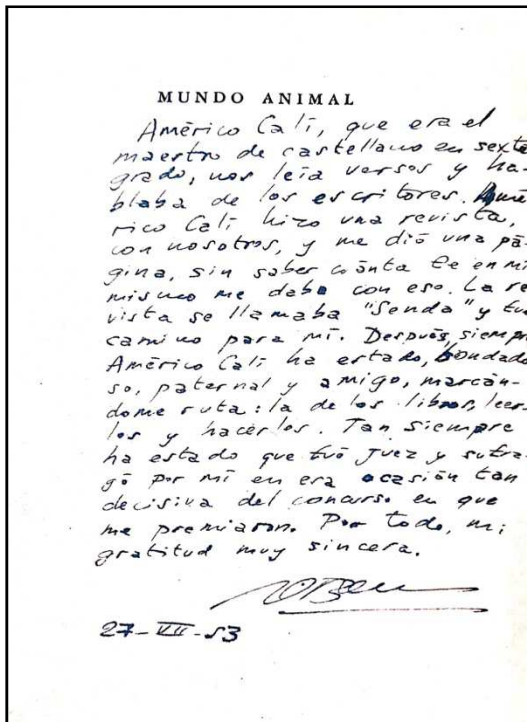 MUNDO ANIMAL
Américo Calí, que era el
maestro de castellano en sexto
grado, nos leía versos y ha-
blaba de los escritores. Amé
rico Calí hizo una revista,
con nosotros, y me dió una pá-
gina, sin saber cuánta fe en mi
mismo me daba con eso. La re
vista se llamaba "Senda" y fue
camino para mí. Después, siempre
Américo Calí ha estado, bondado
so, paternal y amigo, marcán-
dome ruta: la de los libros, leer-
los y hacerlos. Tan siempre
ha estado que fué juez y sufra-
gó por mí en era ocasión tan
decisiva del concurso en que
me premiaron. Por todo, mi
gratitud muy sincera.
27-VII-53